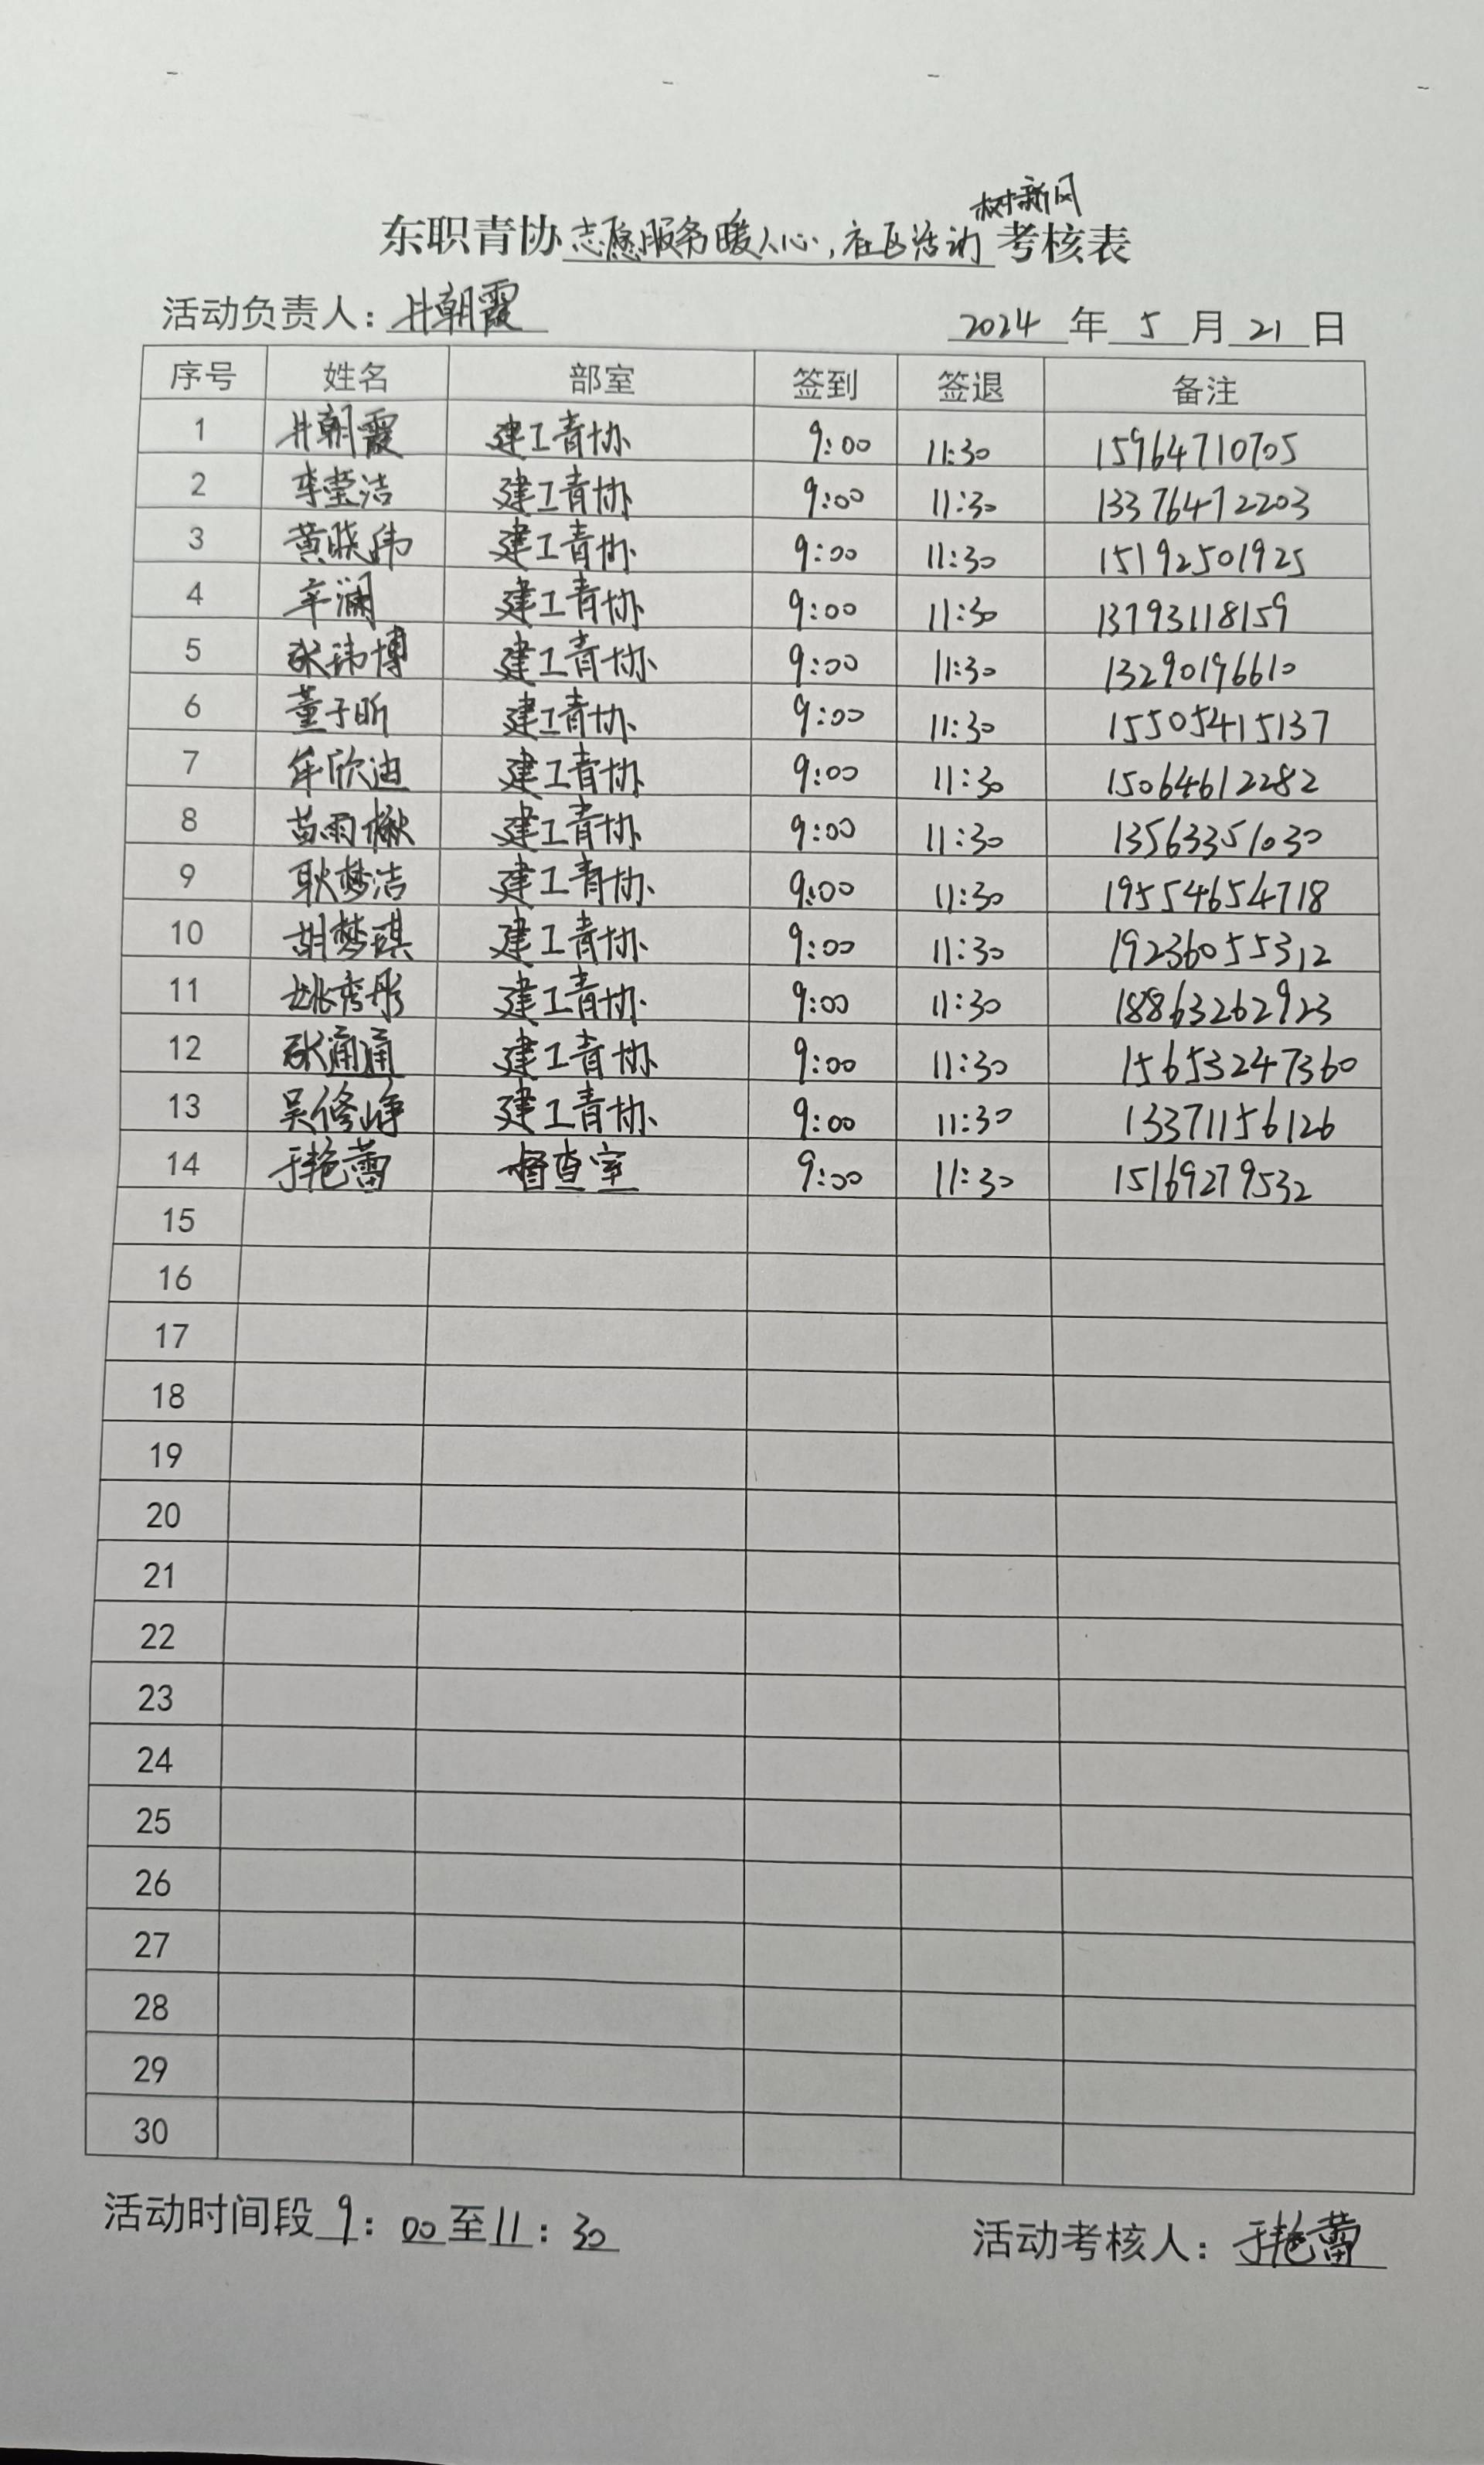 树新风
东职青协志愿服务暖人心，社区活动考核表
活动负责人：井朝霞 2024年5月21日
序号 姓名 部室 签到 签退 备注
1 井朝霞 建工青协 9:00 11:30 15964710705
2 李莹洁 建工青协 9:00 11:30 13376472203
3 黄晓伟 建工青协 9:00 11:30 15192501925
4 辛澜 建工青协 9:00 11:30 13793118159
5 张玮博 建工青协 9:00 11:30 13290196610
6 董子昕 建工青协 9:00 11:30 15505415137
7 牟欣迪 建工青协 9:00 11:30 15064612282
8 苗雨楸 建工青协 9:00 11:30 13563351030
9 耿梦洁 建工青协 9:00 11:30 19554654718
10 胡梦琪 建工青协 9:00 11:30 19236055312
11 建工青协 9:00 11:30 18863262923
12 张涌通 建工青协 9:00 11:30 15653247360
13 吴修峥 建工青协 9:00 11:30 13371156126
14 于艳蕾 督查室 9:00 11:30 15169279532
15
16
17
18
19
20
21
22
23
24
25
26
27
28
29
30
活动时间段9：00至11：30 活动考核人：于艳蕾